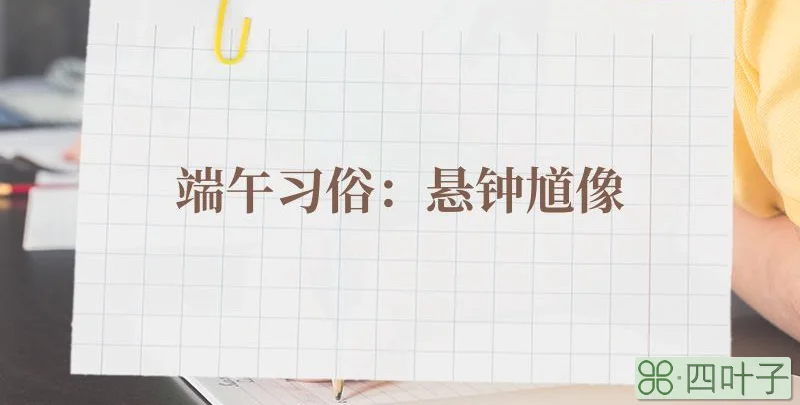 端午习俗：悬钟馗像
四叶子